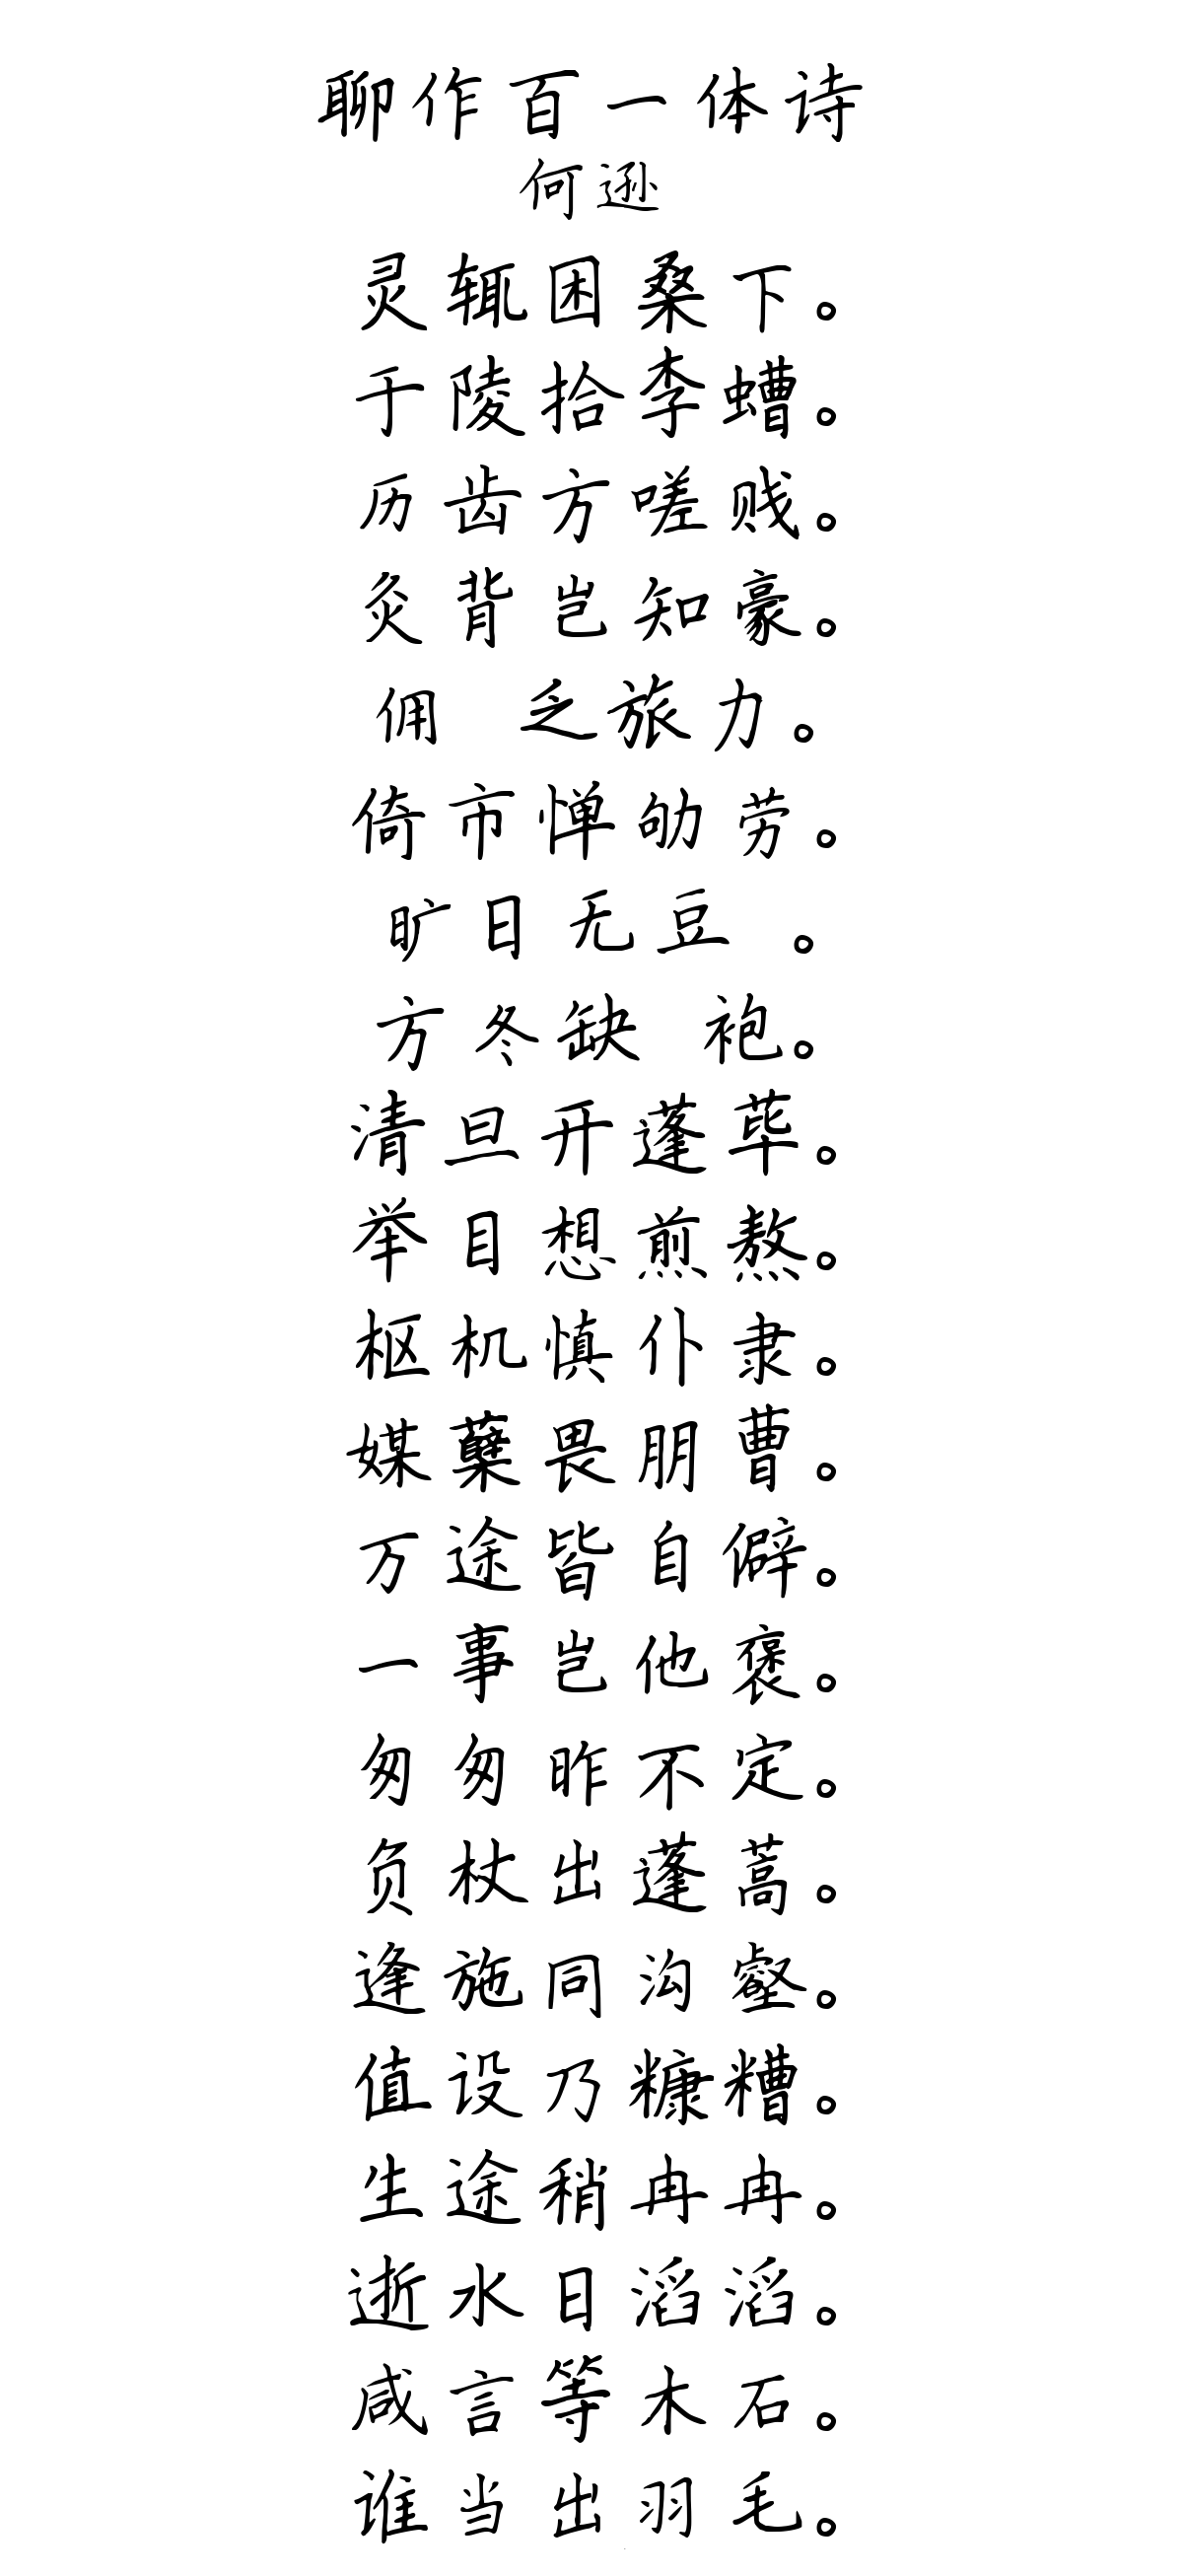 聊作百一体诗
何逊
灵辄困桑下。
于陵拾李螬。
历齿方嗟贱。
灸背岂知豪。
佣 乏旅力。
倚市惮劬劳。
旷日无豆 。
方冬缺 袍。
清旦开蓬荜。
举目想煎熬。
枢机慎仆隶。
媒蘖畏朋曹。
万途皆自僻。
一事岂他褒。
匆匆昨不定。
负杖出蓬蒿。
逢施同沟壑。
值设乃糠糟。
生途稍冉冉。
逝水日滔滔。
咸言等木石。
谁当出羽毛。